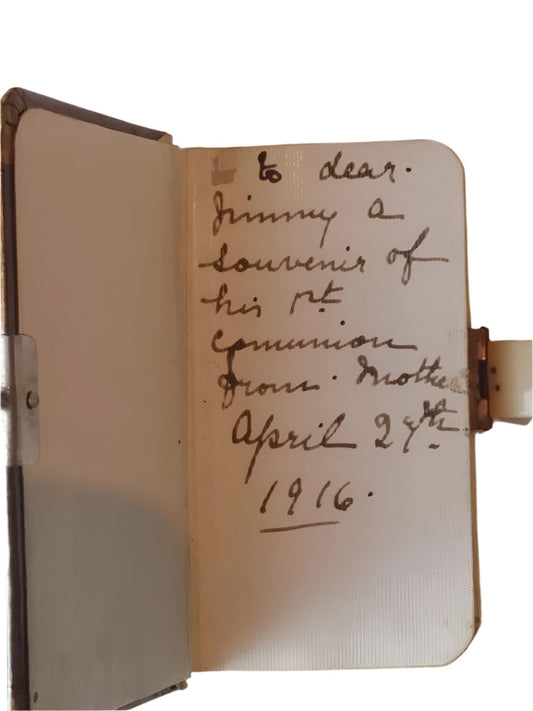 to dear.
Jimmy a
souvenir of
his 1st
Comunion
from. Mother
April 27th
1916.